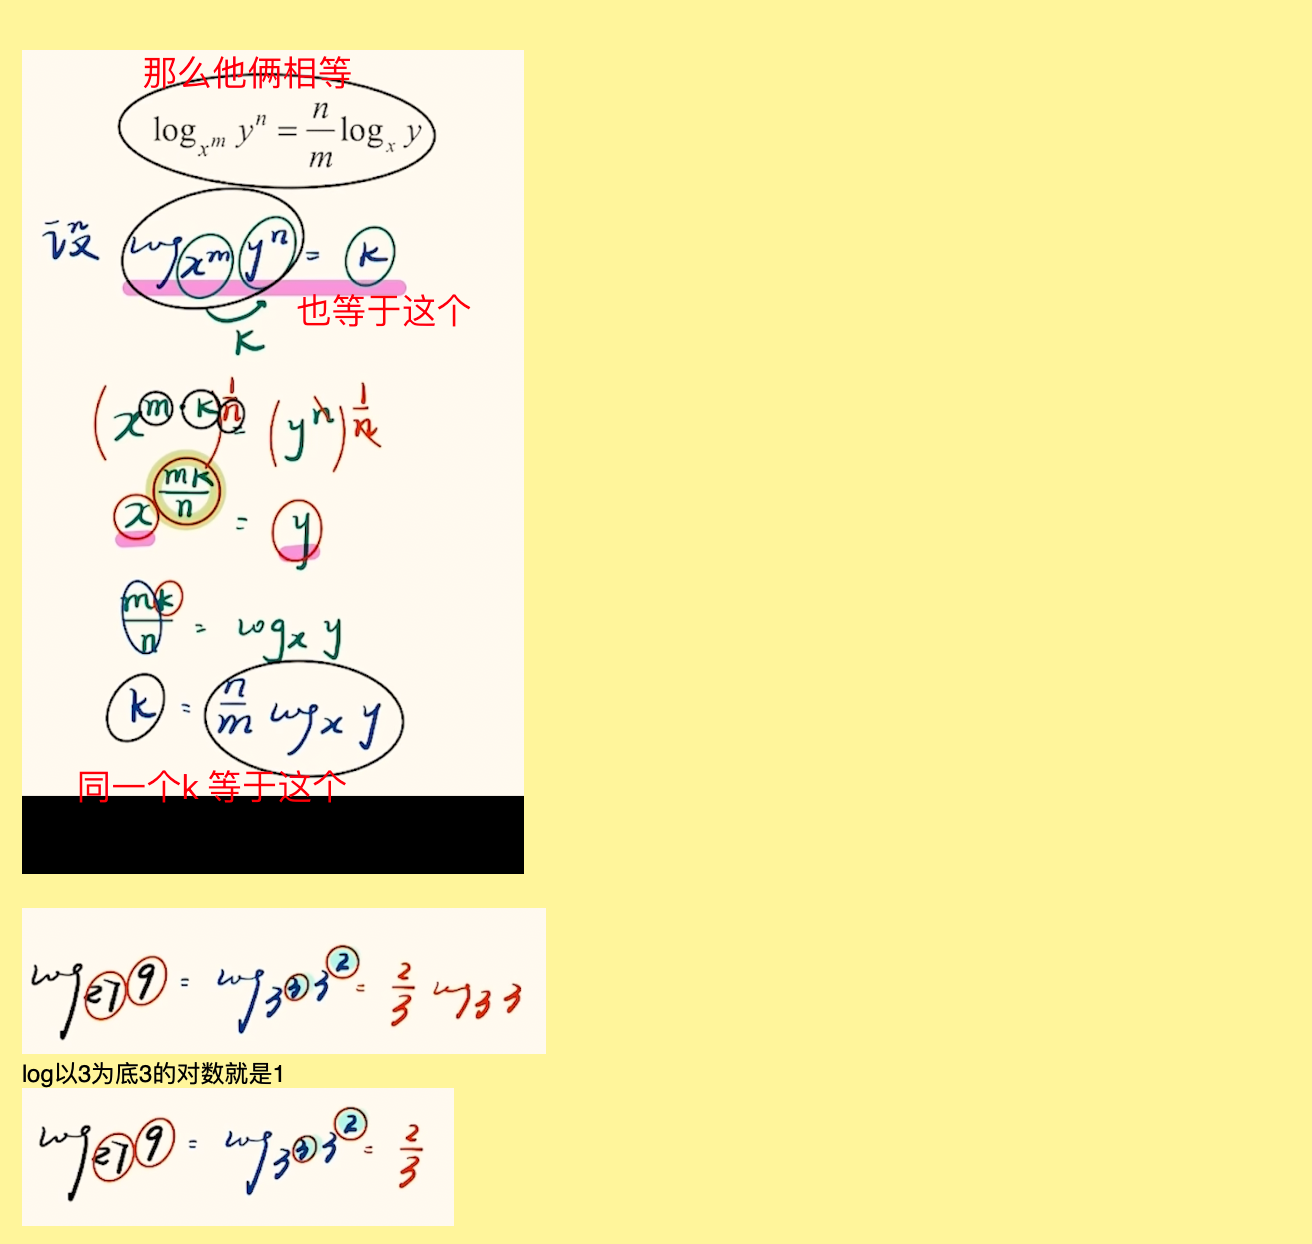 那么他俩相等
log_{x^m} y^n = n/m log_x y
设 log_{x^m} y^n = k
也等于这个
k
(x^{m·k})^{1/n} = (y^n)^{1/n}
x^{mk/n} = y
mk/n = log_x y
k = n/m log_x y
同一个k 等于这个
log_{27} 9 = log_{3^3} 3^2 = 2/3 log_3 3
log以3为底3的对数就是1
log_{27} 9 = log_{3^3} 3^2 = 2/3